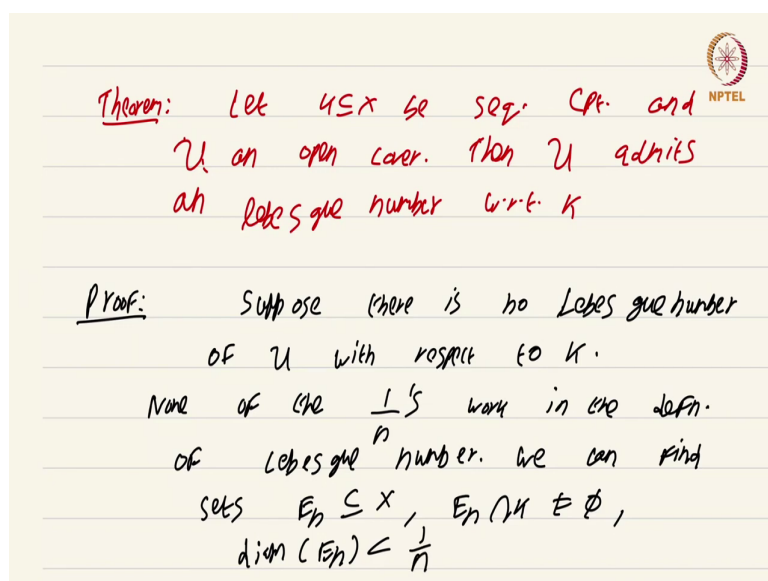 NPTEL
Theorem: Let K ⊆ X be seq. cpt. and
𝒰 an open cover. Then 𝒰 admits
an lebesgue number w.r.t. K
Proof: Suppose there is no Lebesgue number
of 𝒰 with respect to K.
None of the 1/n's work in the defn.
of Lebesgue number. We can find
sets Eₙ ⊆ X, Eₙ ∩ K ≠ ∅,
diam (Eₙ) < 1/n